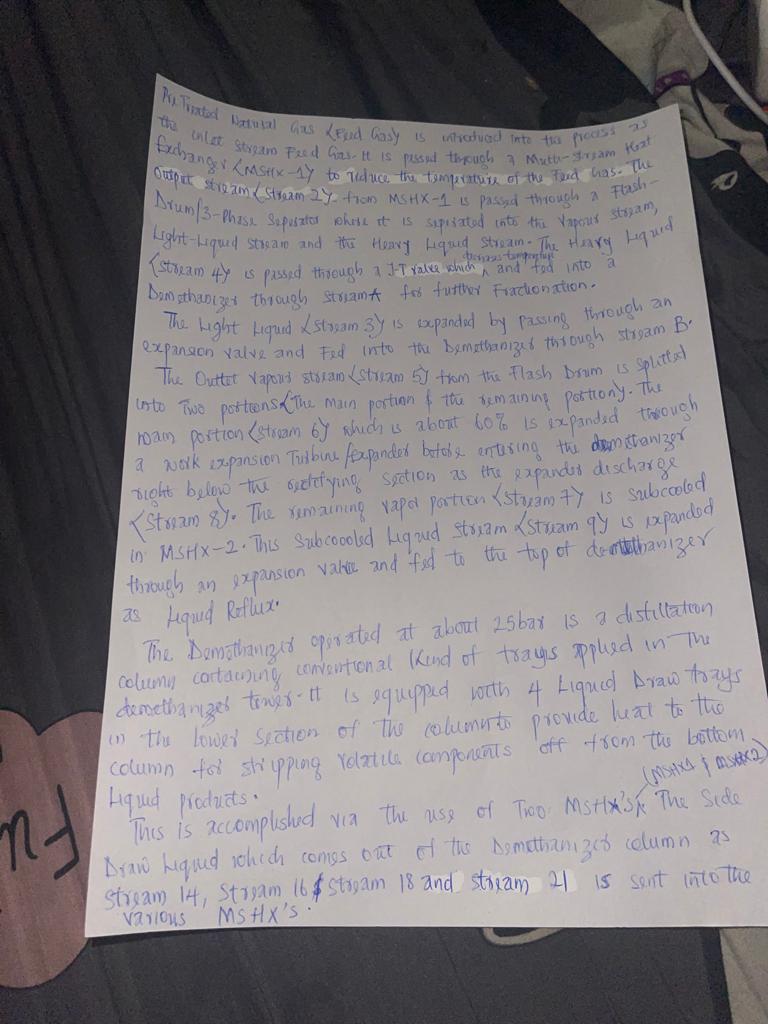 Pre Treated Natural Gas <Feed Gas> is introduced into the process as
the inlet stream Feed Gas. It is passed through a Multi-stream Heat
Exchanger <MSHX-1> to reduce the temperature of the Feed Gas. The
Output stream <Stream 2> from MSHX-1 is passed through a Flash-
Drum/3-Phase Seperator where it is seperated into the Vapour stream,
Light-Liquid Stream and the Heavy Liquid Stream. The Heavy Liquid
<Stream 4> is passed through a J-T valve which decreases temperature and fed into a
Demethanizer through Stream A for further Fractionation.
The Light Liquid <stream 3> is expanded by passing through an
expansion valve and Fed into the Demethanizer through stream B.
The Outlet Vapour stream <Stream 5> from the Flash Drum is splitted
into Two portions <The main portion & the remaining portion>. The
main portion <Stream 6> which is about 60% is expanded through
a work expansion Turbine/expander before entering the demethanizer
right below the rectifying section as the expander discharge
<Stream 8>. The remaining vapor portion <Stream 7> is subcooled
in MSHX-2. This Subcooled Liquid Stream <Stream 9> is expanded
through an expansion valve and fed to the top of demethanizer
as Liquid Reflux.
The Demethanizer operated at about 25bar is a distillation
column containing conventional Kind of trays applied in The
demethanizer tower. It is equipped with 4 Liquid Draw trays
in the lower section of the column to provide heat to the
column for stripping volatile components off from the bottom
Liquid products.
This is accomplished via the use of Two MSHX's (MSHX1 & MSHX2) The Side
Draw Liquid which comes out of the Demethanizer column as
Stream 14, Stream 16 & Stream 18 and stream 21 is sent into the
various MSHX's.
Fu